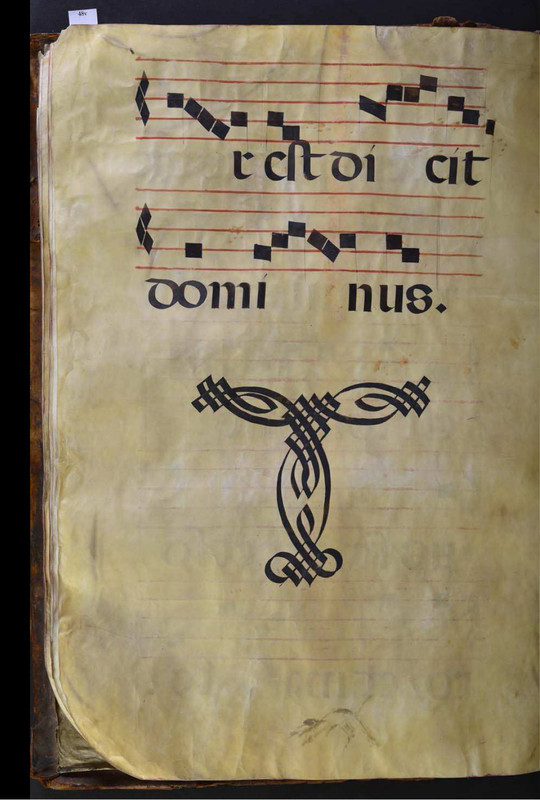 r est di cit
domi nus.